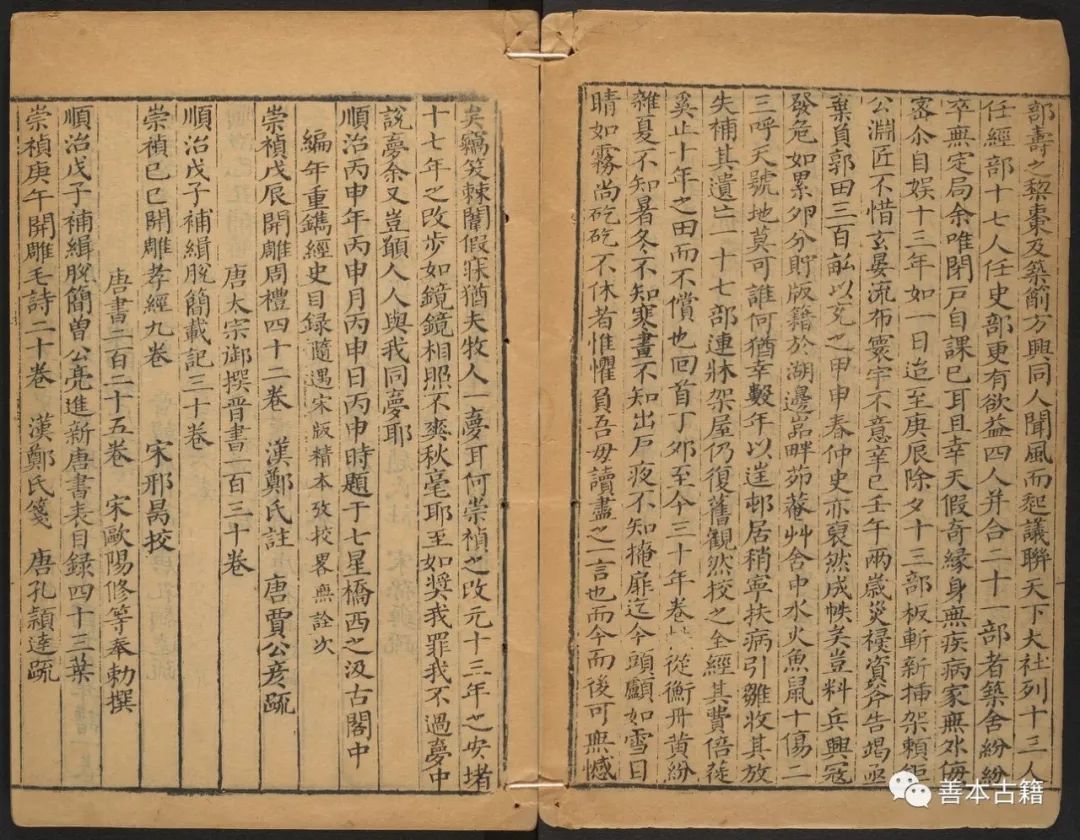 部壽之棃棗及築削方興同人聞風而起議聯天下大社列十三人
任經部十七人任史部更有欲益四人并合二十一部者築舍紛紛
卒無定局余唯閉戶自課已耳且幸天假奇緣身無疾病家無外侮
密尒自娛十三年如一日迨至庚辰除夕十三部板斬新揷架賴鉅
公淵匠不惜玄晏流布寰宇不意辛巳壬午兩歲災祲資斧告竭亟
棄負郭田三百畝以充之甲申春仲史亦裒然成帙矣豈料兵興寇
發危如累卵分貯版籍於湖邊岩畔茆菴艸舍中水火魚鼠十傷二
三呼天號地莫可誰何猶幸數年以𨓏邨居稍寧扶病引雛收其放
失補其遺亡一十七部連牀架屋仍復舊觀然校之全經其費倍蓰
奚止十年之田而不償也回首丁夘至今三十年卷從衡丹黃紛
雜夏不知暑冬不知寒晝不知出戶夜不知掩扉迄今頭顱如雪目
睛如霧尚矻矻不休者惟懼負吾母讀盡之一言也而今而後可無憾
矣竊笑棘闈假寐猶夫牧人一夢耳何崇禎之改元十三年之安堵
十七年之改步如鏡鏡相照不爽秋毫耶至如奬我罪我不過夢中
說夢余又豈願人人與我同夢耶
順治丙申年丙申月丙申日丙申時題于七星橋西之汲古閣中
編年重鐫經史目録隨遇宋版精本攷校畧無詮次
崇禎戊辰開雕周禮四十二卷 漢鄭氏註 唐賈公彥疏
唐太宗御撰晉書一百三十卷
順治戊子補緝脫簡載記三十卷
崇禎己巳開雕孝經九卷 宋邢昺挍
唐書二百二十五卷 宋歐陽修等奉勅撰
順治戊子補緝脫簡曾公亮進新唐書表目録四十三葉
崇禎庚午開雕毛詩二十卷 漢鄭氏箋 唐孔頴達疏
善本古籍